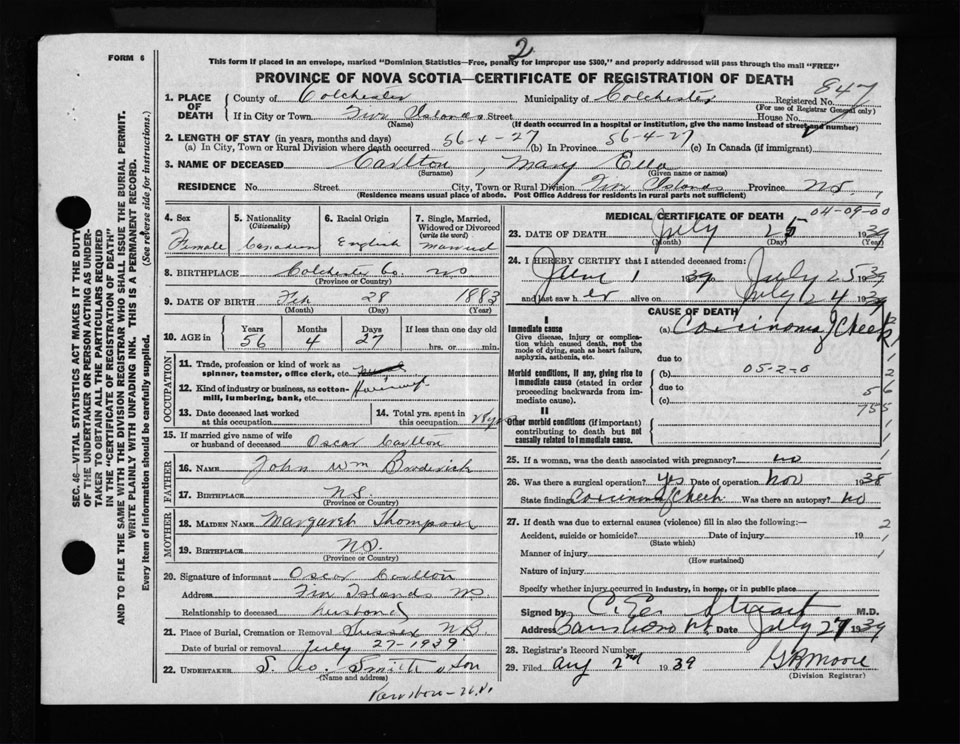 2
FORM 6
This form if placed in an envelope, marked "Dominion Statistics—Free, penalty for improper use $300," and properly addressed will pass through the mail "FREE"
PROVINCE OF NOVA SCOTIA—CERTIFICATE OF REGISTRATION OF DEATH
1. PLACE OF DEATH
County of Colchester Municipality of Colchester Registered No. 847
(For use of Registrar General only)
If in City or Town Five Islands Street House No.
(Name) (If death occurred in a hospital or institution, give the name instead of street and number)
2. LENGTH OF STAY (in years, months and days)
(a) In City, Town or Rural Division where death occurred 56-4-27 (b) In Province 56-4-27 (c) In Canada (if immigrant)
3. NAME OF DECEASED Carlton, Mary Ella
(Surname) (Given name or names)
RESIDENCE No. Street City, Town or Rural Division Five Islands Province NS
(Residence means usual place of abode. Post Office Address for residents in rural parts not sufficient)
4. Sex
Female
5. Nationality
(Citizenship)
Canadian
6. Racial Origin
English
7. Single, Married, Widowed or Divorced
(write the word)
Married
8. BIRTHPLACE Colchester Co. NS
(Province or Country)
9. DATE OF BIRTH Feb 28 1883
(Month) (Day) (Year)
10. AGE in
Years Months Days If less than one day old
56 4 27 hrs. or min.
OCCUPATION
11. Trade, profession or kind of work as
spinner, teamster, office clerk, etc.
12. Kind of industry or business, as cotton-
mill, lumbering, bank, etc. Housewife
13. Date deceased last worked
at this occupation
14. Total yrs. spent in
this occupation
15. If married give name of wife
or husband of deceased Oscar Carlton
FATHER
16. NAME John Wm Broderick
17. BIRTHPLACE N.S.
(Province or Country)
MOTHER
18. MAIDEN NAME Margaret Thompson
19. BIRTHPLACE NS.
(Province or Country)
20. Signature of informant Oscar Carlton
Address Five Islands NS.
Relationship to deceased husband
21. Place of Burial, Cremation or Removal Sussex NB
Date of burial or removal July 27-1939
22. UNDERTAKER S. W. Smith & Son
(Name and address)
Parrsboro-N.S.
MEDICAL CERTIFICATE OF DEATH
04-09-00
23. DATE OF DEATH July 25 1939
(Month) (Day) (Year)
24. I HEREBY CERTIFY that I attended deceased from:
June 1 1939 to July 25 1939
and last saw her alive on July 24 1939
CAUSE OF DEATH
I
Immediate cause
Give disease, injury or complica-
tion which caused death, not the
mode of dying, such as heart failure,
asphyxia, asthenia, etc.
(a) Carcinoma of Cheek
due to
Morbid conditions, if any, giving rise to
immediate cause (stated in order
proceeding backwards from im-
mediate cause).
(b) 05-2-0
due to
(c)
2
56
755
II
Other morbid conditions (if important)
contributing to death but not
causally related to immediate cause.
25. If a woman, was the death associated with pregnancy? no
26. Was there a surgical operation? yes Date of operation Nov 1938
State findings Carcinoma of Cheek Was there an autopsy? no
27. If death was due to external causes (violence) fill in also the following:—
Accident, suicide or homicide? Date of injury 19
(State which)
Manner of injury
(How sustained)
Nature of injury
Specify whether injury occurred in industry, in home, or in public place
Signed by C. E. Stuart M.D.
Address Parrsboro N.S. Date July 27 1939
28. Registrar's Record Number
29. Filed Aug 2nd 1939 G R Moore
(Division Registrar)
SEC. 46—VITAL STATISTICS ACT MAKES IT THE DUTY
OF THE UNDERTAKER OR PERSON ACTING AS UNDER-
TAKER TO OBTAIN ALL THE PARTICULARS REQUIRED
IN THE "CERTIFICATE OF REGISTRATION OF DEATH"
AND TO FILE THE SAME WITH THE DIVISION REGISTRAR WHO SHALL ISSUE THE BURIAL PERMIT.
WRITE PLAINLY WITH UNFADING INK. THIS IS A PERMANENT RECORD.
Every item of information should be carefully supplied. (See reverse side for instructions.)